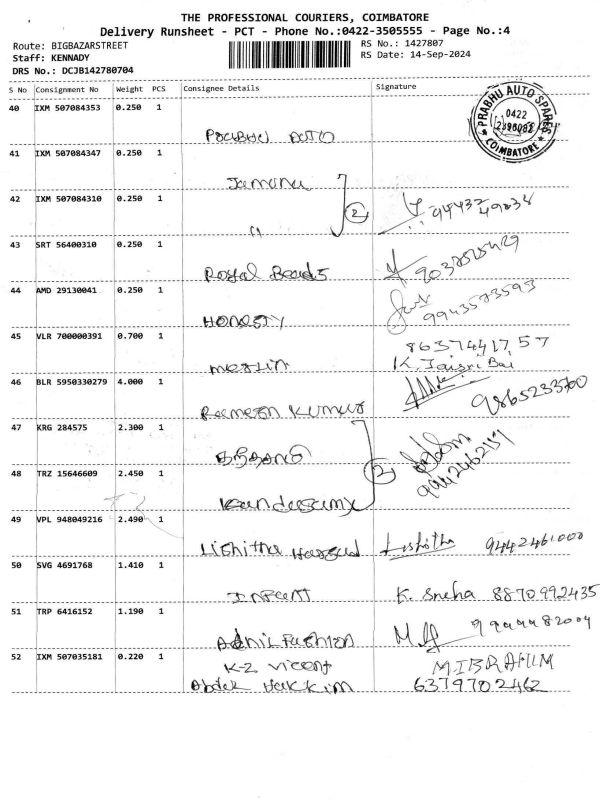 THE PROFESSIONAL COURIERS, COIMBATORE
Delivery Runsheet - PCT - Phone No.:0422-3505555 - Page No.:4
Route: BIGBAZARSTREET
RS No.: 1427807
Staff: KENNADY
RS Date: 14-Sep-2024
DRS No.: DCJB142780704
S No Consignment No Weight PCS Consignee Details Signature
PRABHU AUTO SPARES
0422
COIMBATORE
40 IXM 507084353 0.250 1
41 IXM 507084347 0.250 1
Jamuna
42 IXM 507084310 0.250 1
2
43 SRT 56400310 0.250 1
Royal Beads
44 AMD 29130041 0.250 1
9943573593
HONESTY
45 VLR 700000391 0.700 1
8637441757
merlin K. Jaisri Bai
46 BLR 5950330279 4.000 1
Rameesh Kumar
47 KRG 284575 2.300 1
2
48 TRZ 15646609 2.450 1
9442462151
Kandasamy
49 VPL 948049216 2.490 1
Lishitha 9442461000
50 SVG 4691768 1.410 1
K. Sneha 8870992435
51 TRP 6416152 1.190 1
Fashion
52 IXM 507035181 0.220 1
K-Z Vicent MIBRAHIM
Abdul Hakkim 6379702462